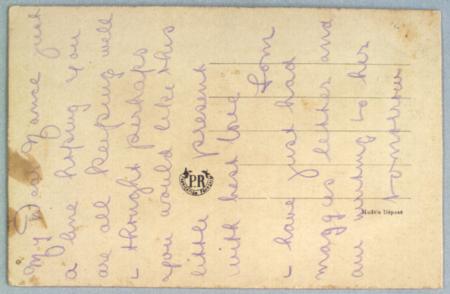 My Dear Nance just
a line hoping you
are all keeping well
I thought perhaps
you would like this
little present
with best love
Tom
I have just had
maggies letter and
am writing to her
tomorrow
PR
Modèle Déposé